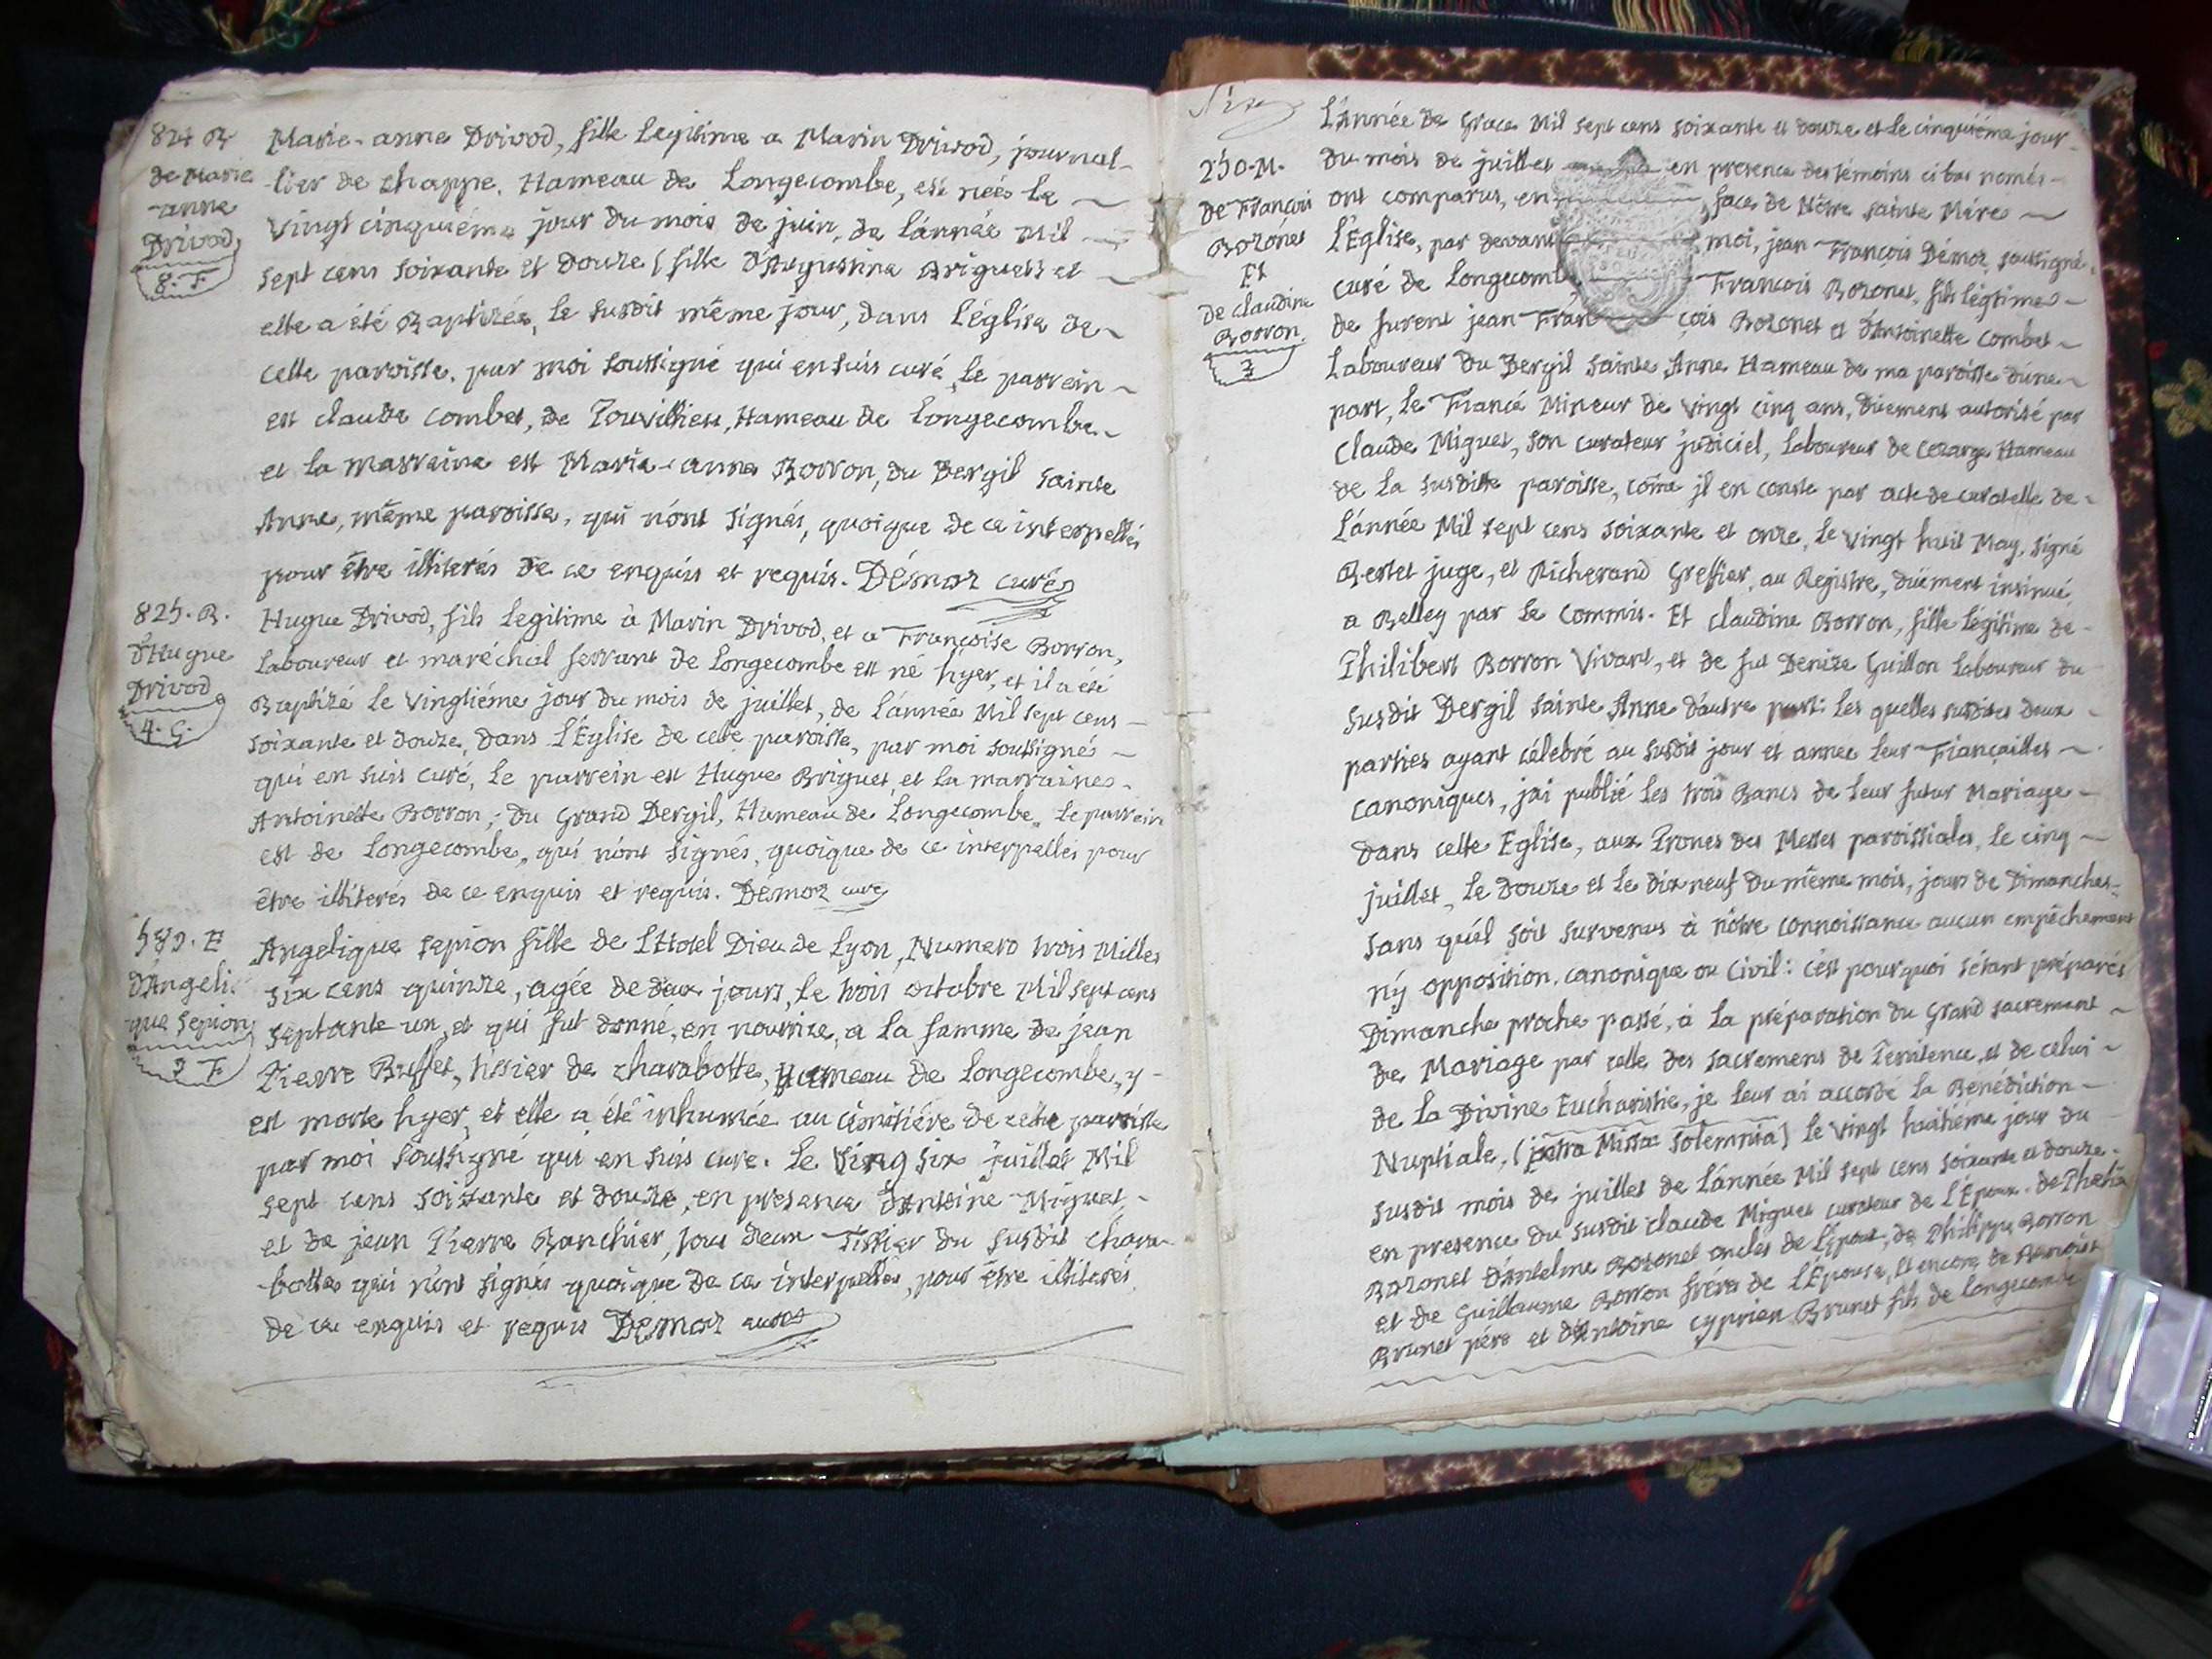 824 B
de Marie
-anne
Drivod
8. F
Marie-anne Drivod, fille Legitime a Marin Drivod, journal-
-lier de chappe, Hameau de Longecombe, est née Le
vingt cinquiéme jour du mois de juin, de L'année Mil
sept cens soixante et douze (fille d'Augustine Briguet) et
elle a été Baptizée, le susdit même jour, dans L'église de
cette paroisse, par moi soussigné qui en suis curé, Le parrein
est claude Combet, de Touvillieu, Hameau de Longecombe
et la marraine est Marie-anne Borron, du Dergil sainte
Anne, même paroisse, qui n'ont signés, quoique de ce interpellés
pour être illiterés de ce enquis et requis. Démoz curé
825. B.
d'Hugue
Drivod
4. G.
Hugue Drivod, fils Legitime à Marin Drivod, et a Françoise Borron,
Laboureur et maréchal ferrant de Longecombe est né hyer, et il a été
Baptizé le vingtiéme jour du mois de juillet, de L'année Mil sept cens
soixante et douze, dans L'Eglise de cette paroisse, par moi soussigné
qui en suis curé, Le parrein est Hugue Briguet, et La marraine
Antoinette Borron; du Grand Dergil, Hameau de Longecombe, Le parrein
est de Longecombe, qui n'ont signés, quoique de ce interppellés pour
être illiterés de ce enquis et requis. Démoz curé
d'Angeli-
que Sepion
3 F
Angelique Sepion fille de L'Hotel Dieu de Lyon, Numero trois Milles
six cens quinze, agée de deux jours, le trois octobre Mil sept cens
septante un, et qui fut donné, en nourrice, a La femme de jean
Pierre Buffet, tissier de charabotte, Hameau de Longecombe, y
est morte hyer, et elle a été inhumée au cimitiére de cette paroisse
par moi soussigné qui en suis curé. Le Vingt six juillet Mil
sept cens soixante et douze, en presence d'Antoine Miguet,
et de jean Pierre Banchier, tous deux Tissier du susdit chara-
-botte qui n'ont signés quoique de ce interpellés, pour être illiterés
de ce enquis et requis Démoz curé
250. M.
de François
Bozonet
Et
de claudine
Borron.
3
L'Année de Grace Mil sept cens soixante et douze et le cinquiéme jour
du mois de juillet en presence des témoins ci bas només
ont comparus, en face de Nôtre sainte Mére
L'Eglise, par devant moi, jean François Démoz, soussigné,
curé de Longecombe, François Bozonet, fils légitime
de furent jean Fran çois Bozonet et d'Antoinette Combet
Laboureur du Dergil sainte Anne Hameau de ma paroisse d'une
part, le Fiancé Mineur de vingt cinq ans, düement autorisé par
Claude Miguet, son curateur judiciel, Laboureur de Cezarge Hameau
de La susditte paroisse, côme il en conste par acte de curatelle de
L'année Mil sept cens soixante et onze, Le vingt huit May, signé
Bertet juge, et Richerand Greffier, au Registre, düement insinué
a Belley par Le Commis. Et claudine Borron, fille Légitime de
Philibert Borron Vivant, et de fut Denize Guillon Laboureur du
susdit Dergil sainte Anne d'autre part: Les quelles susdites deux
parties ayant célebré au susdit jour et année leur Fiançailles
canoniques, j'ai publié Les trois Bancs de Leur futur Mariage
dans cette Eglise, aux Prones des Messes paroissiales, Le cinq
juillet, Le douze et Le dix neuf du même mois, jours de Dimanches,
sans quél soit survenus à nôtre connoissance aucun empêchement
ny opposition, canonique ou civil: c'est pourquoi s'étant préparés
Dimanche proche passé, à La préparation du Grand sacrement
de Mariage par celle des sacremens de Penitence, et de celui
de La Divine Eucharistie, je leur ai accordé La Benédiction
Nuptiale, (intra Missae Solemnia) Le vingt huitiéme jour du
susdit mois de juillet de L'année Mil sept cens soixante et douze.
en presence du susdit claude Miguet curateur de L'Epoux. de
Bozonet d'Antelme Bozonet oncles de L'Epoux, de Philippe Borron
et de Guillaume Borron fréres de L'Epouse, Et encore de Benoist
Brunet pére et d'Antoine Cyprien Brunet fils de Longecombe